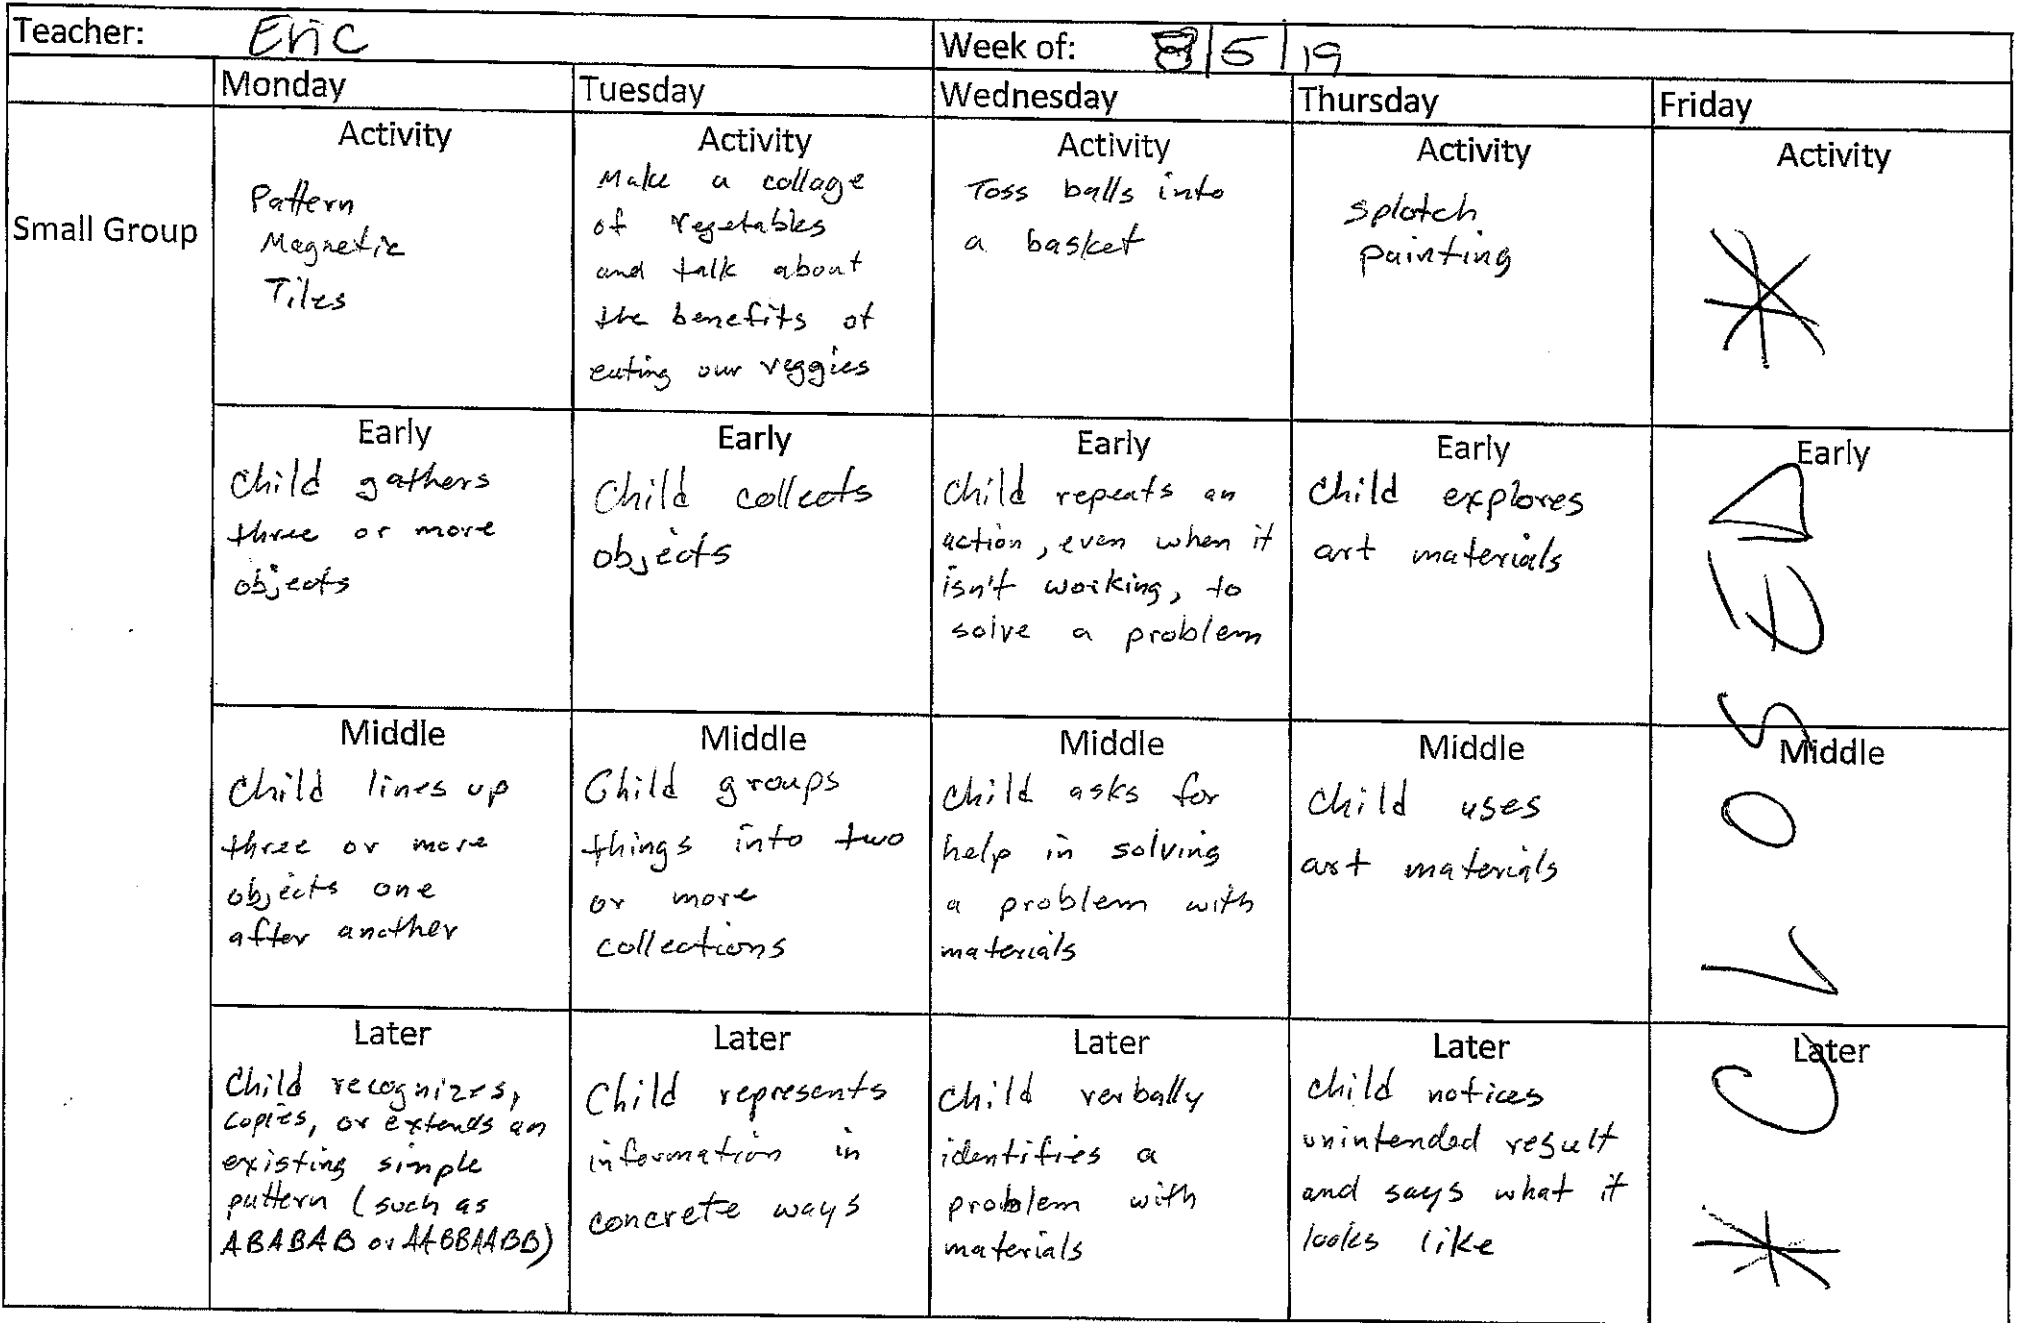 Teacher: Eric
Week of: 8/5/19
Monday
Tuesday
Wednesday
Thursday
Friday
Small Group
Activity
Pattern
Magnetic
Tiles
Activity
Make a collage
of vegetables
and talk about
the benefits of
eating our veggies
Activity
Toss balls into
a basket
Activity
Splotch
painting
Activity
Early
Child gathers
three or more
objects
Early
Child collects
objects
Early
Child repeats an
action, even when it
isn't working, to
solve a problem
Early
Child explores
art materials
Early
Middle
Child lines up
three or more
objects one
after another
Middle
Child groups
things into two
or more
collections
Middle
Child asks for
help in solving
a problem with
materials
Middle
Child uses
art materials
Middle
Later
Child recognizes,
copies, or extends an
existing simple
pattern (such as
ABABAB or AABBAABB)
Later
Child represents
information in
concrete ways
Later
Child verbally
identifies a
problem with
materials
Later
Child notices
unintended result
and says what it
looks like
Later
* CLOSED *